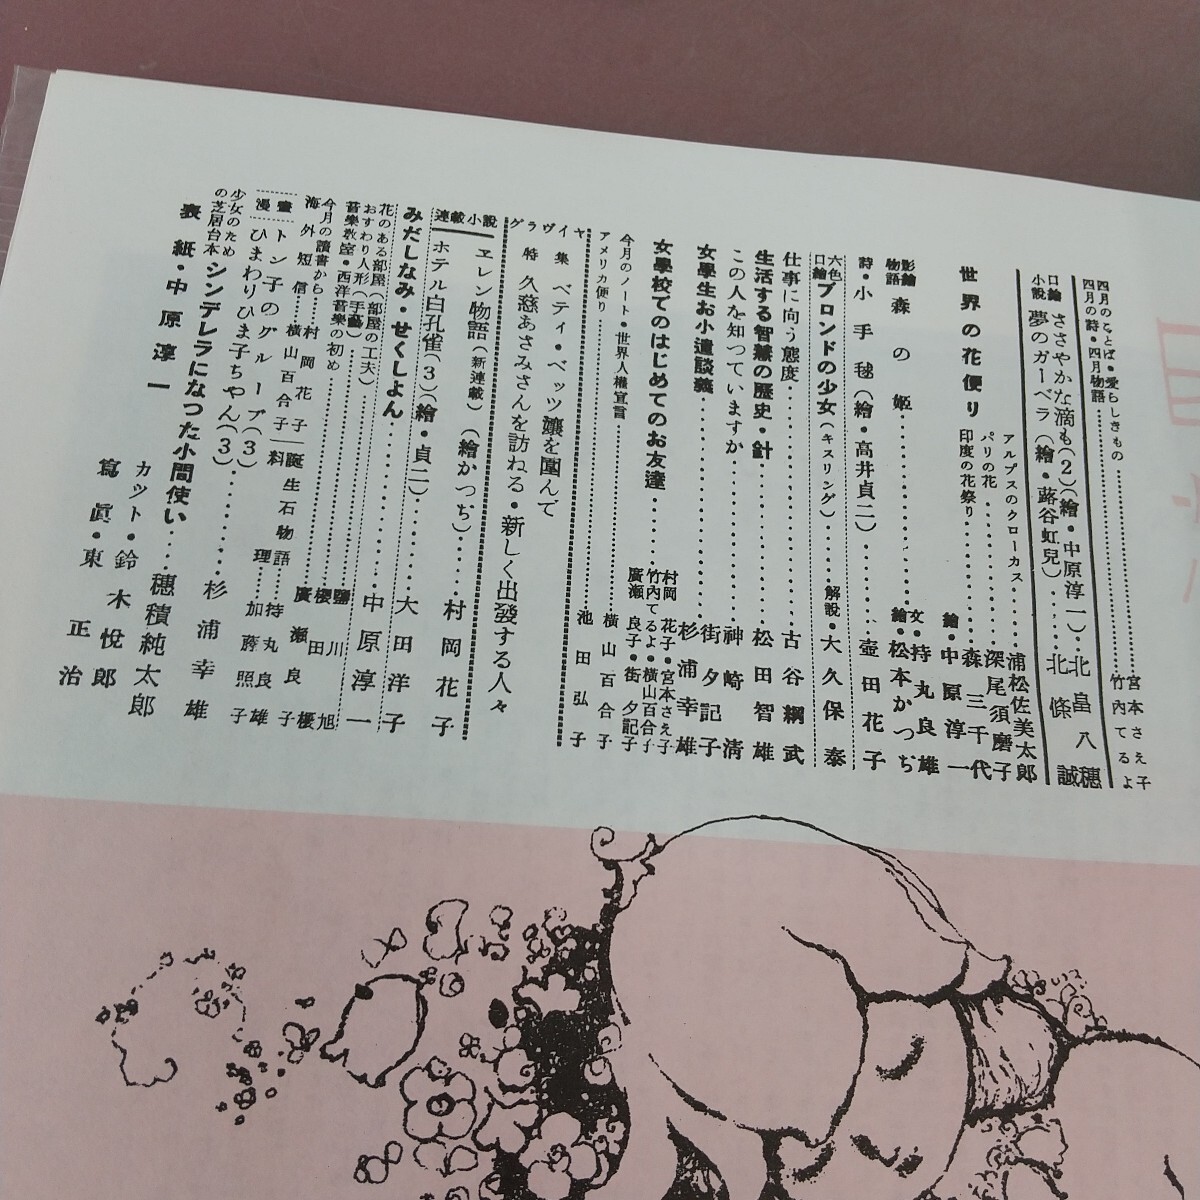 四月のことば・愛らしきもの…………宮本さえ子
四月の詩・四月物語…………竹内てるよ
口繪 ささやかな滴も(2)(繪・中原淳一)・北畠八穗
小説 夢のガーベラ(繪・蕗谷虹兒)・北條誠
世界の花便り
アルプスのクローカス……浦松佐美太郎
パリの花…………深尾須磨子
印度の花祭り…………森三千代
繪・中原淳一
影繪物語 森の姫…………文・持丸良雄
繪・松本かつぢ
詩・小手毬(繪・高井貞二)…………壺田花子
六色口繪 ブロンドの少女(キスリング)…………解説・大久保泰
仕事に向う態度…………古谷綱武
生活する智慧の歷史・針…………松田智雄
この人を知つていますか…………神崎淸
女學生お小遣談義…………街夕記子
杉浦幸雄
女學校でのはじめてのお友達…………村岡花子・宮本さえ子
竹内てるよ・橫山百合子
廣瀬良子・街夕記子
今月のノート・世界人權宣言…………橫山百合子
アメリカ便り…………池田弘子
グラヴイヤ
特集 ベティ・ベッツ孃を圍んで
久慈あさみさんを訪ねる・新しく出發する人々
連載小説
ヱレン物語(新連載)(繪かつぢ)……村岡花子
ホテル白孔雀(3)(繪・貞二)……大田洋子
みだしなみ・せくしよん…………中原淳一
花のある部屋(部屋の工夫)
おすわり人形(手藝)…………鹽川旭
音樂敎室・西洋音樂の初め…………櫻田櫻
今月の讀書から…………村岡花子
廣瀬良子
海外短信…………橫山百合子
誕生石物語……持丸良雄
料理……加藤照子
漫畫
トン子のグループ(3)…………杉浦幸雄
ひまわりひま子ちやん(3)
少女のための芝居台本 シンデレラになつた小間使い…穗積純太郎
表紙・中原淳一
カット・鈴木悅郎
寫眞・東正治